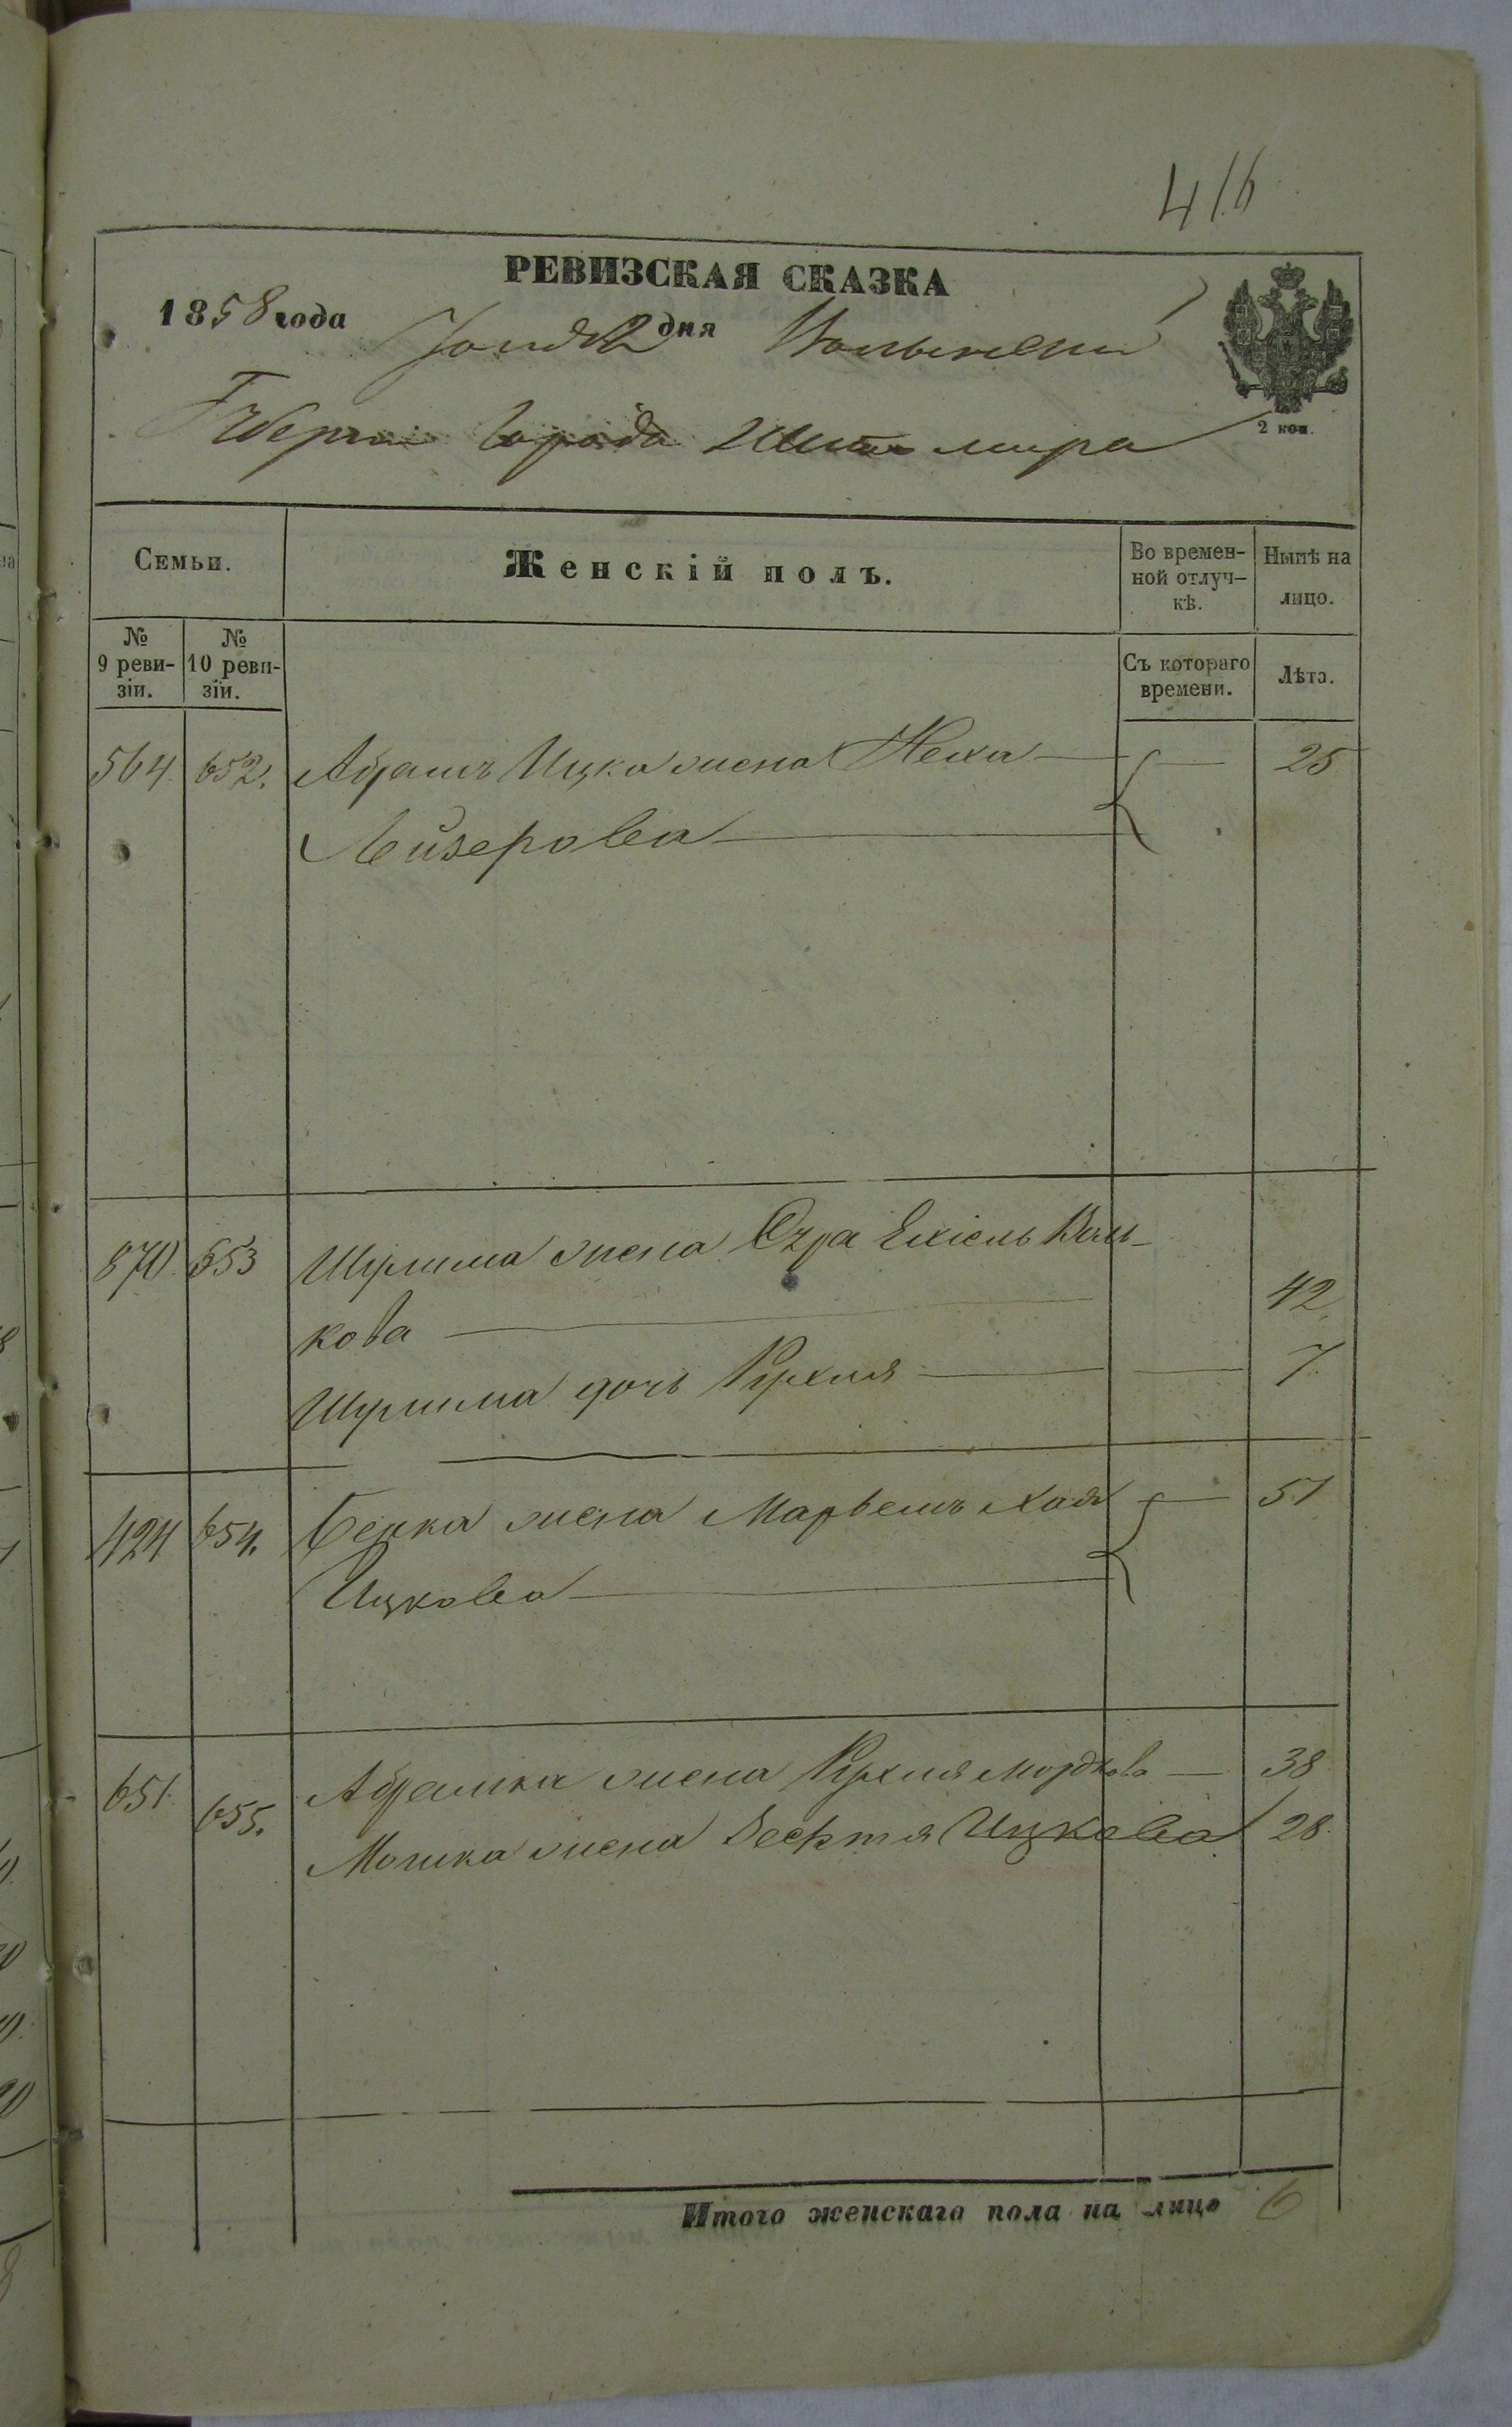 416
РЕВИЗСКАЯ СКАЗКА
1858 года Іюня 2 дня Волынской
Губерніи города Житомира
2 коп.
Семьи.
Женскій полъ.
Во времен-
ной отлуч-
кѣ.
Нынѣ на
лицо.
№
9 реви-
зіи.
№
10 реви-
зіи.
Съ котораго
времени.
Лѣта.
564. 652. Абрамъ Ицка жена Неха — 25
Лейзерова
870. 653 Шулима жена Езра Ехіель Вол-
кова 42.
Шулима дочь Рухля — 7.
424 654. Берка жена Хая — 51
Ицкова
651. 655. Абрамка жена Рухля Мордкова — 38
Мошка жена Ицкова 28.
Итого женскаго пола на лицо 6